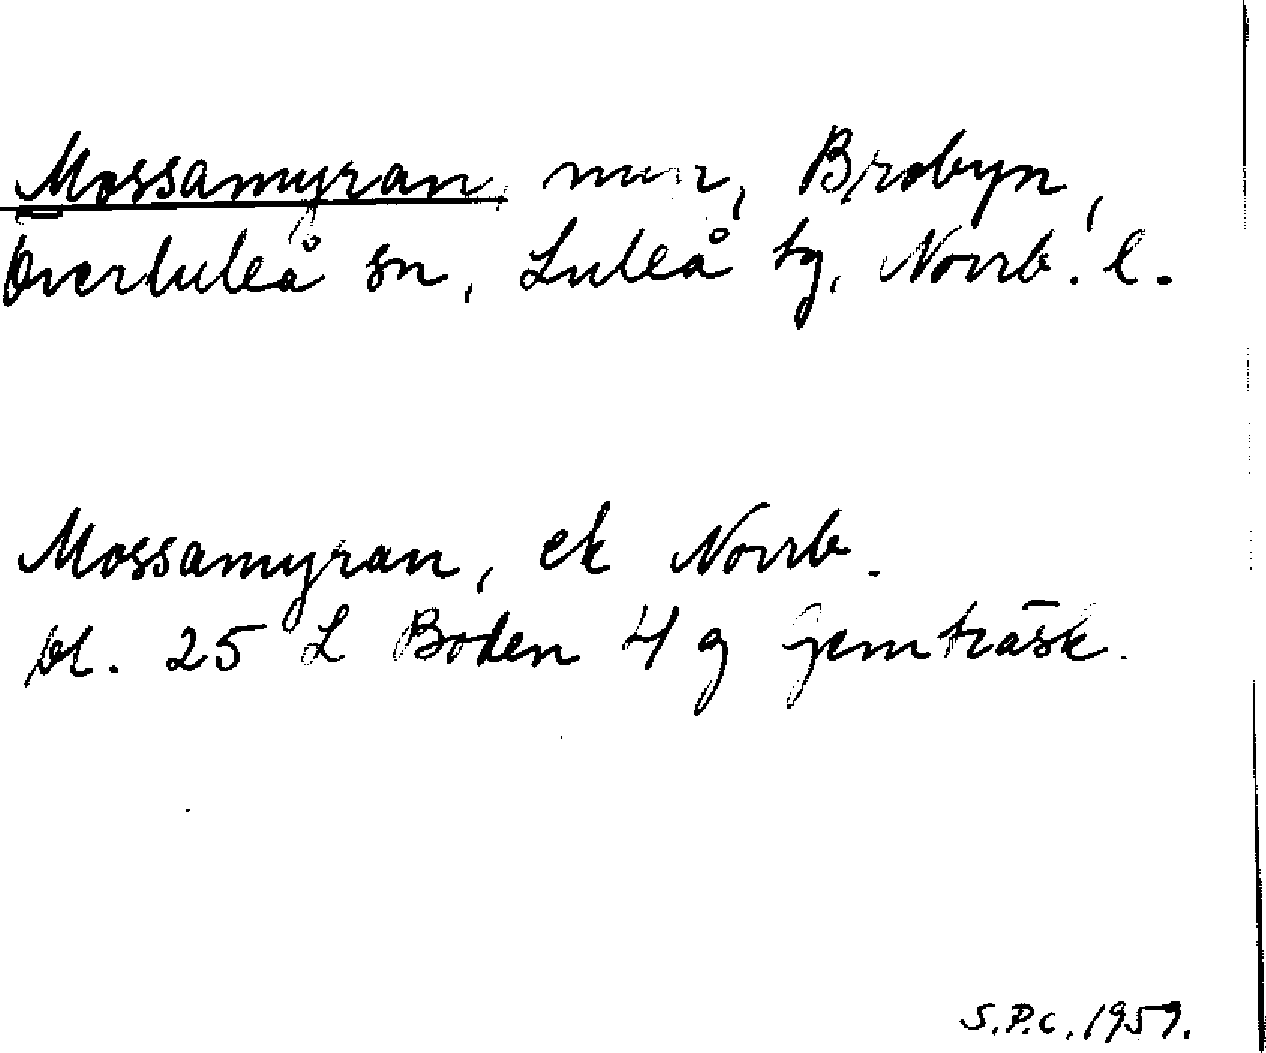 Mossamyran, myr, Brobyn,
Överluleå sn, Luleå tg, Norrb. l.
Mossamyran, ek Norrb.
bl. 25 L Boden 4 g Gemträsk.
S.P.C. 1959.